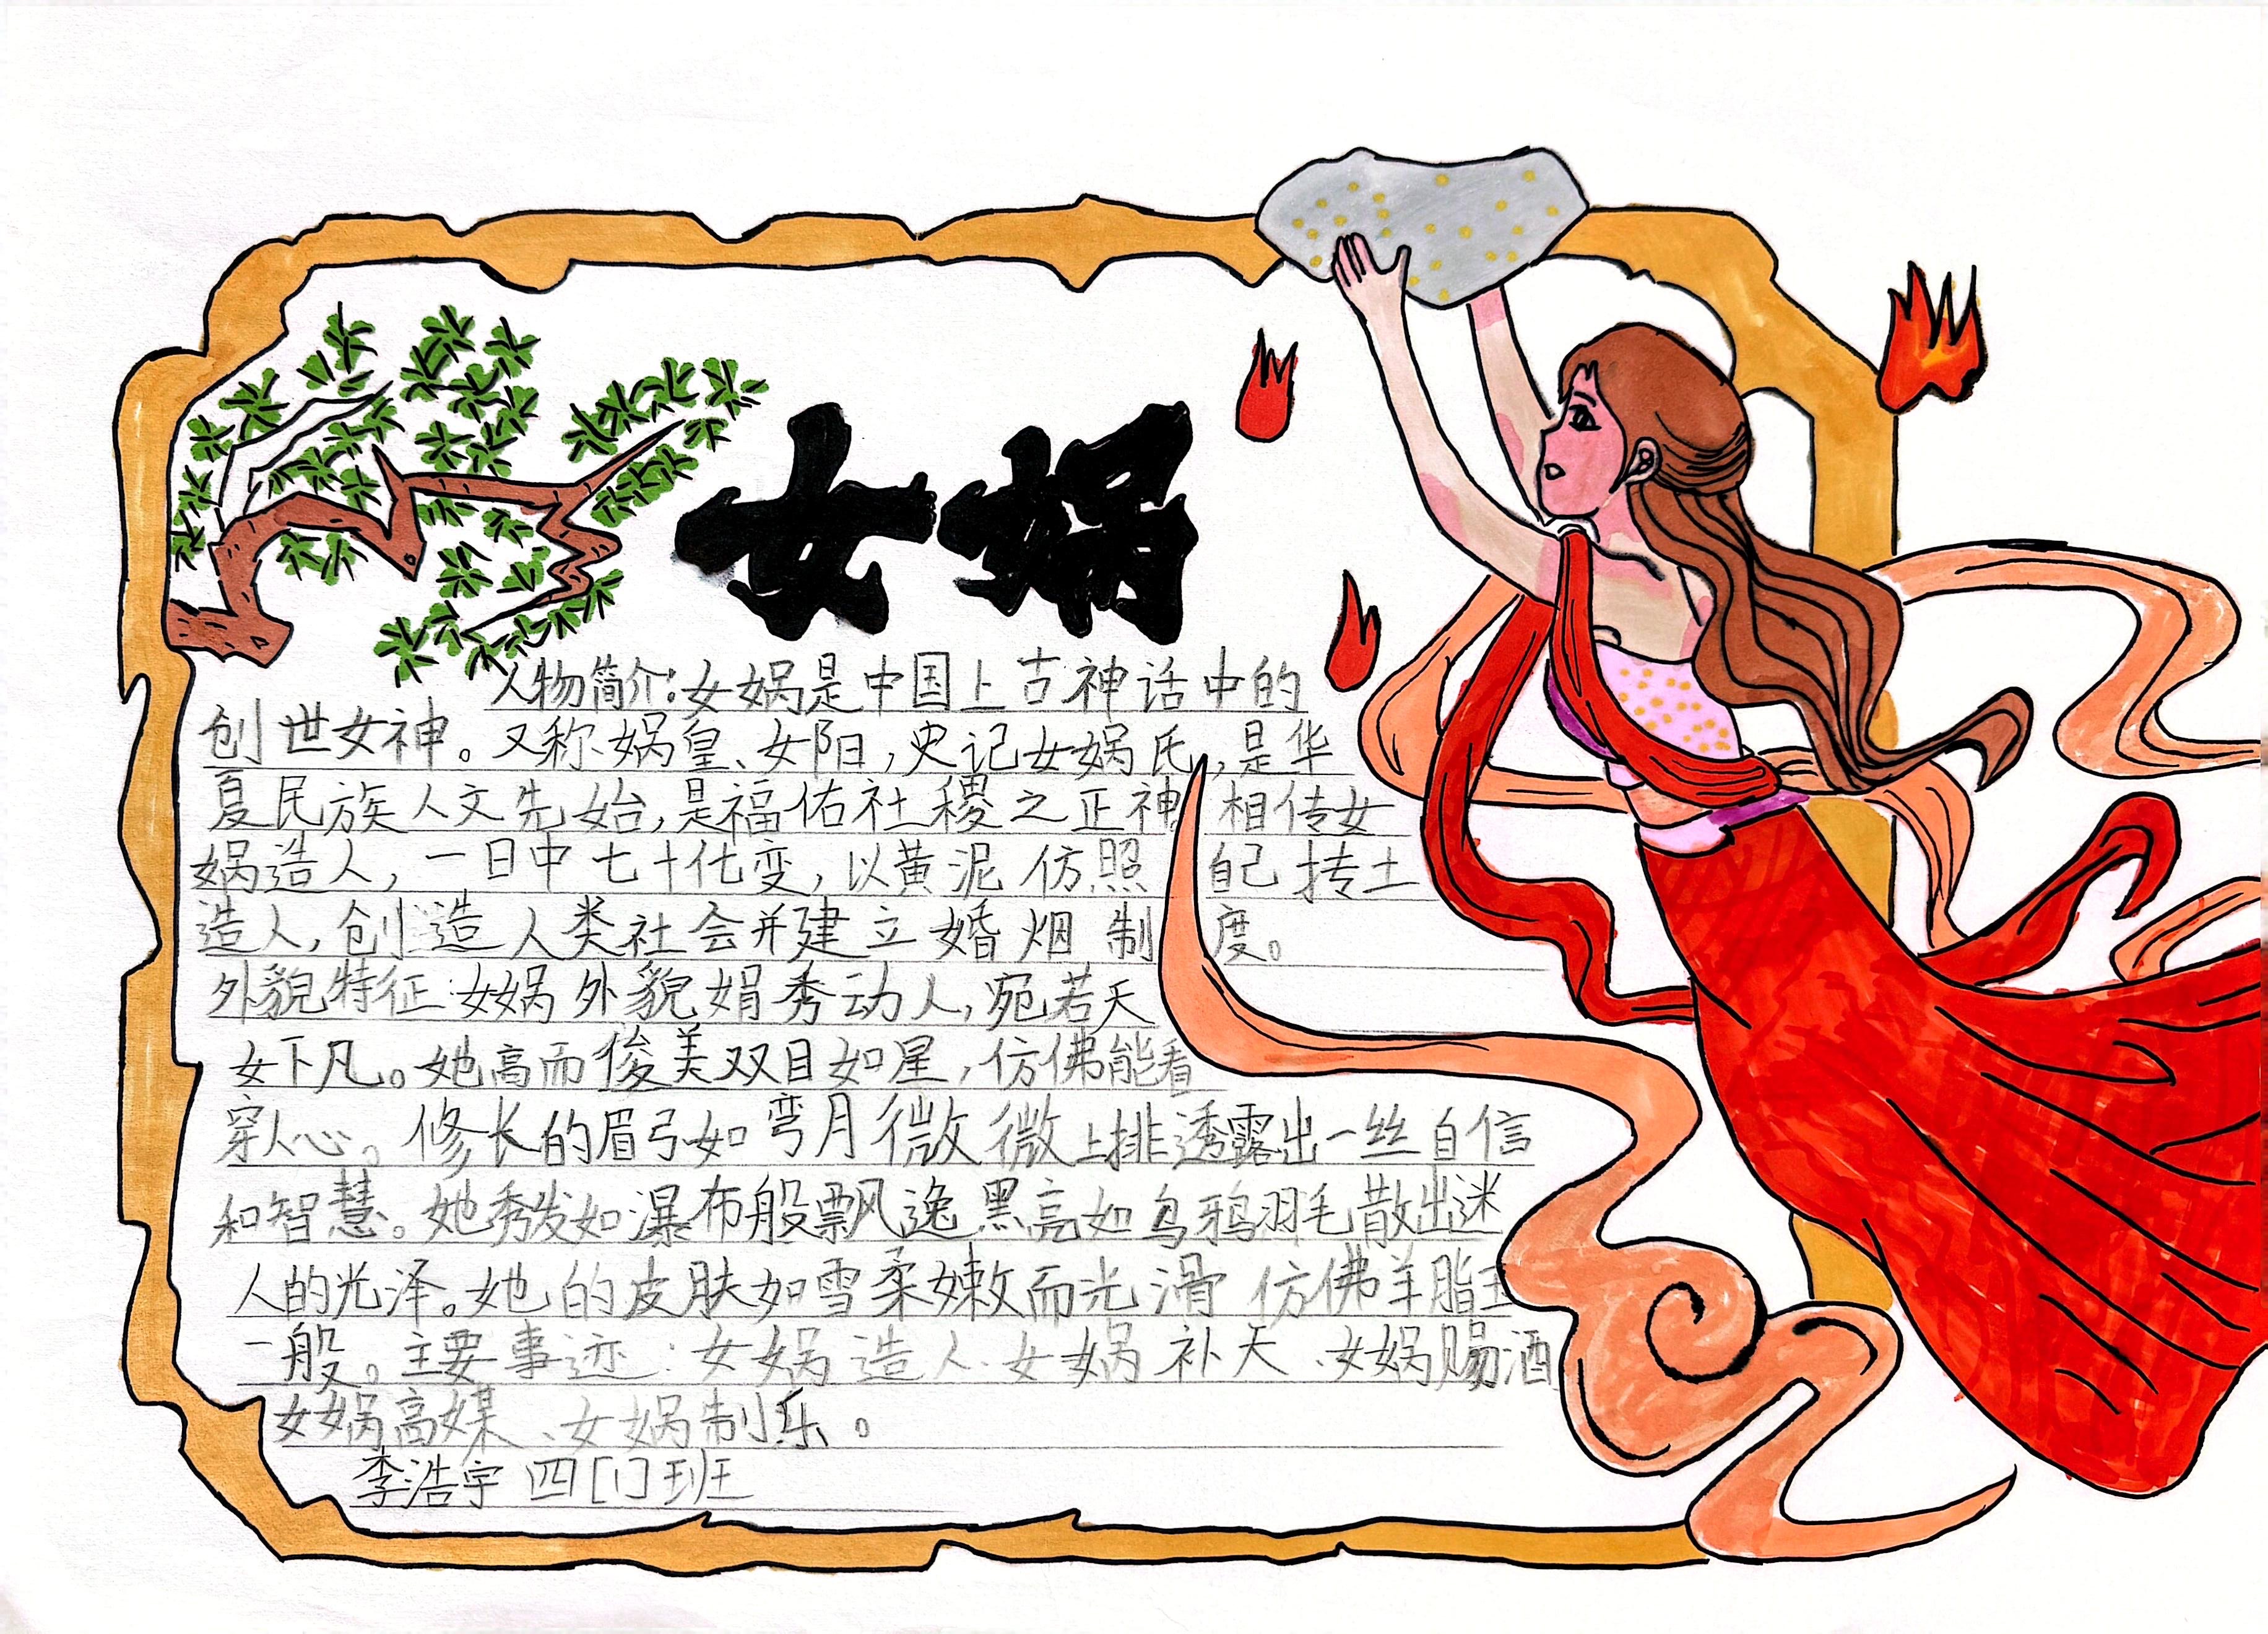 女娲
人物简介:女娲是中国上古神话中的
创世女神。又称娲皇、女阳,史记女娲氏,是华
夏民族人文先始,是福佑社稷之正神 相传女
娲造人,一日中七十化变,以黄泥仿照自己抟土
造人,创造人类社会并建立婚烟制度。
外貌特征:女娲外貌娟秀动人,宛若天
女下凡。她高而俊美双目如星,仿佛能看
穿人心。修长的眉弓如弯月微微上排透露出一丝自信
和智慧。她秀发如瀑布般飘逸黑亮如乌鸦羽毛散出迷
人的光泽。她的皮肤如雪柔嫩而光滑仿佛羊脂玉
一般。主要事迹:女娲造人、女娲补天、女娲赐酒
女娲高媒、女娲制乐。
李浩宇 四[1]班